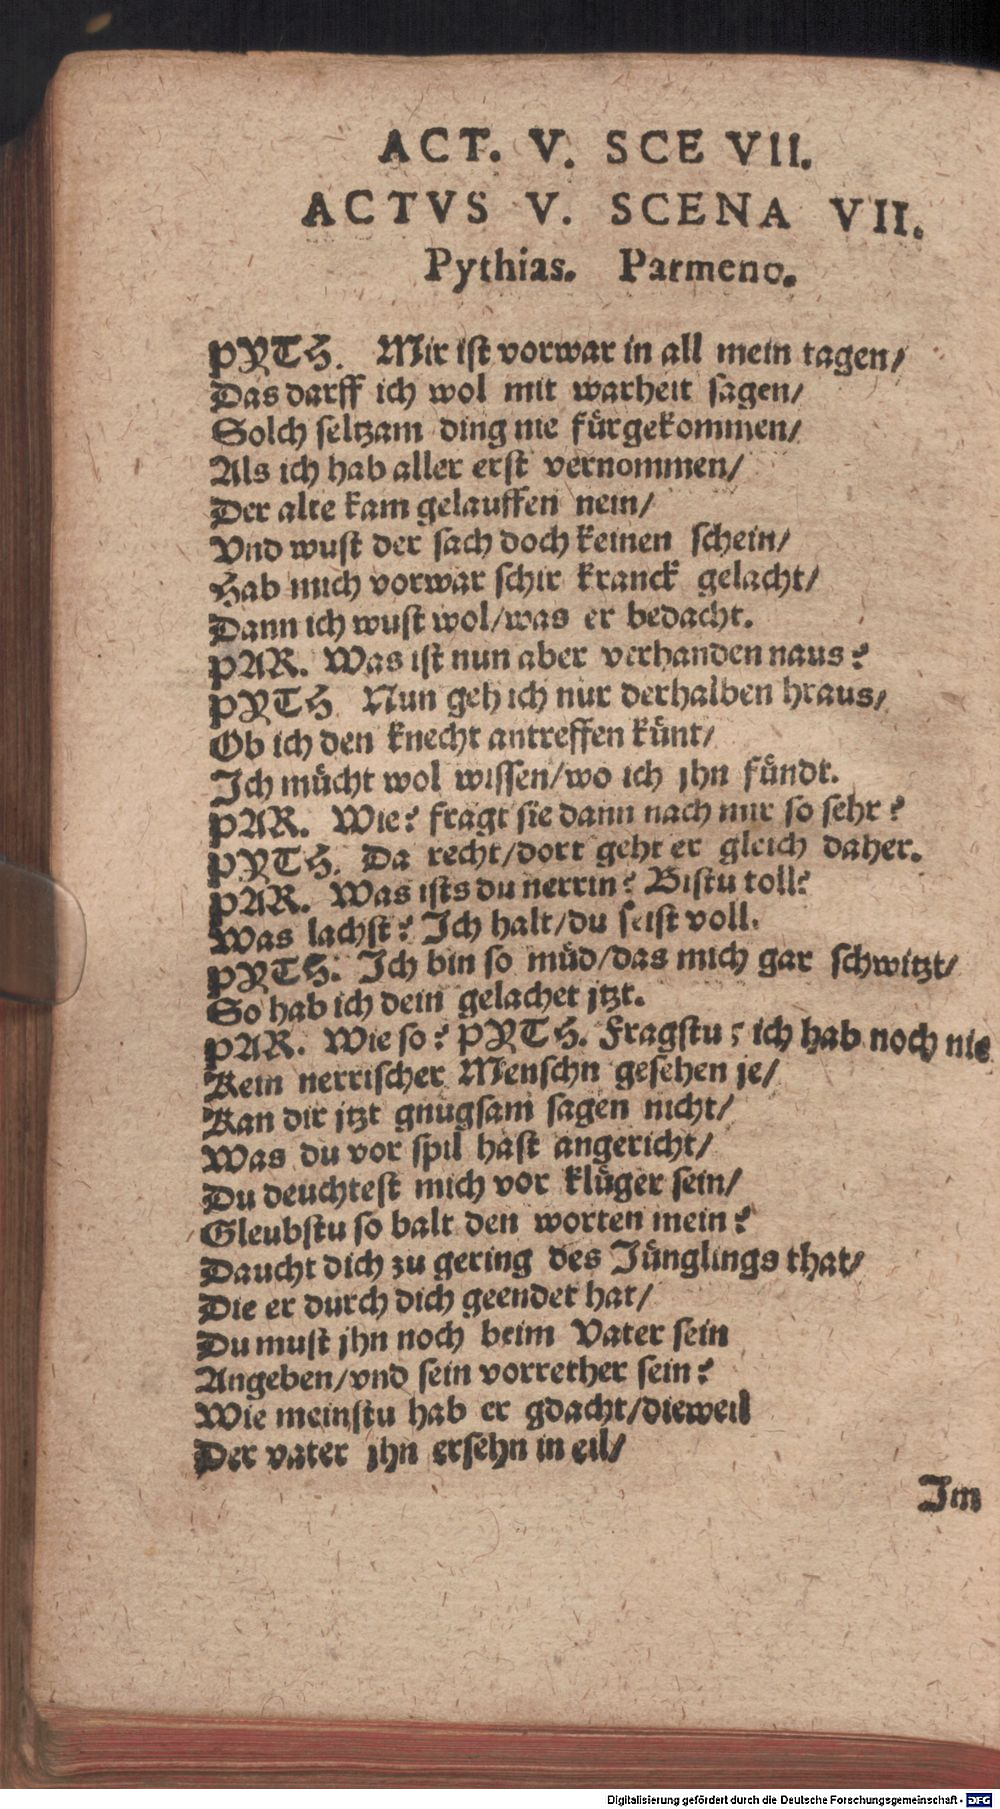 ACT. V. SCE VII.
ACTVS V. SCENA VII.
Pythias. Parmeno.
PYTH. Mir ist vorwar in all mein tagen/
Das darff ich wol mit warheit sagen/
Solch seltzam ding nie fürgekommen/
Als ich hab aller erst vernommen/
Der alte kam gelauffen nein/
Vnd wust der sach doch keinen schein/
Hab mich vorwar schir kranck gelacht/
Dann ich wust wol/was er bedacht.
PAR. Was ist nun aber verhanden naus?
PYTH Nun geh ich nur derhalben hraus/
Ob ich den knecht antreffen künt/
Ich mücht wol wissen/wo ich jhn fündt.
PAR. Wie? fragt sie dann nach mir so sehr?
PYTH. Da recht/dort geht er gleich daher.
PAR. Was ists du nerrin? Bistu toll?
Was lachst? Ich halt/du seist voll.
PYTH. Ich bin so müd/das mich gar schwitzt/
So hab ich dein gelachet jtzt.
PAR. Wie so? PYTH. Fragstu? ich hab noch nie
Kein nerrischer Menschn gesehen je/
Kan dir jtzt gnugsam sagen nicht/
Was du vor spil hast angericht/
Du deuchtest mich vor klüger sein/
Gleubstu so balt den worten mein?
Daucht dich zu gering des Jünglings that/
Die er durch dich geendet hat/
Du must jhn noch beim Vater sein
Angeben/vnd sein vorrether sein?
Wie meinstu hab er gdacht/dieweil
Der vater jhn ersehn in eil/
Im
Digitalisierung gefördert durch die Deutsche Forschungsgemeinschaft - DFG